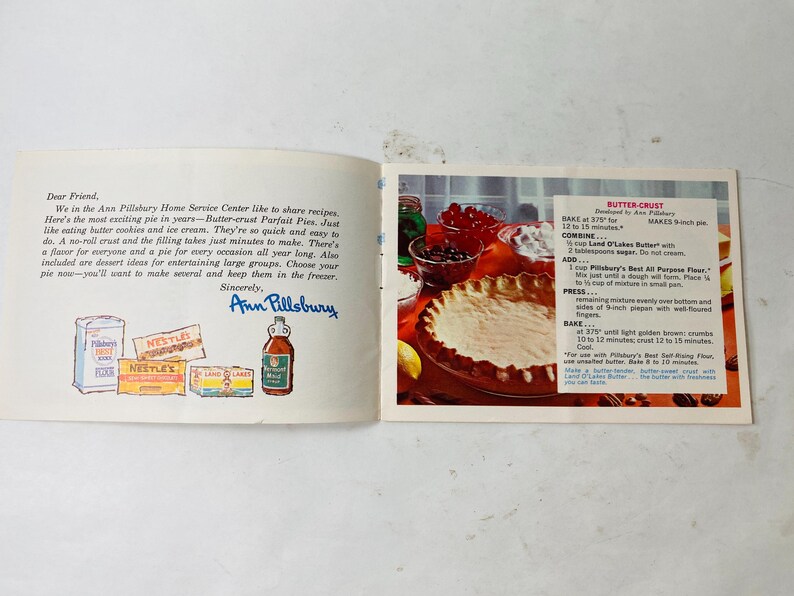 Dear Friend,
We in the Ann Pillsbury Home Service Center like to share recipes.
Here's the most exciting pie in years—Butter-crust Parfait Pies. Just
like eating butter cookies and ice cream. They're so quick and easy to
do. A no-roll crust and the filling takes just minutes to make. There's
a flavor for everyone and a pie for every occasion all year long. Also
included are dessert ideas for entertaining large groups. Choose your
pie now—you'll want to make several and keep them in the freezer.
Sincerely,
Ann Pillsbury
Pillsbury's
BEST
XXXX
FLOUR
NESTLÉ'S
NESTLÉ'S
SEMI-SWEET CHOCOLATE
LAND O LAKES
Vermont
Maid
SYRUP
BUTTER-CRUST
Developed by Ann Pillsbury
BAKE at 375° for MAKES 9-inch pie.
12 to 15 minutes.*
COMBINE...
½ cup Land O'Lakes Butter* with
2 tablespoons sugar. Do not cream.
ADD...
1 cup Pillsbury's Best All Purpose Flour.*
Mix just until a dough will form. Place ¼
to ⅓ cup of mixture in small pan.
PRESS...
remaining mixture evenly over bottom and
sides of 9-inch piepan with well-floured
fingers.
BAKE...
at 375° until light golden brown: crumbs
10 to 12 minutes; crust 12 to 15 minutes.
Cool.
*For use with Pillsbury's Best Self-Rising Flour,
use unsalted butter. Bake 8 to 10 minutes.
Make a butter-tender, butter-sweet crust with
Land O'Lakes Butter...the butter with freshness
you can taste.